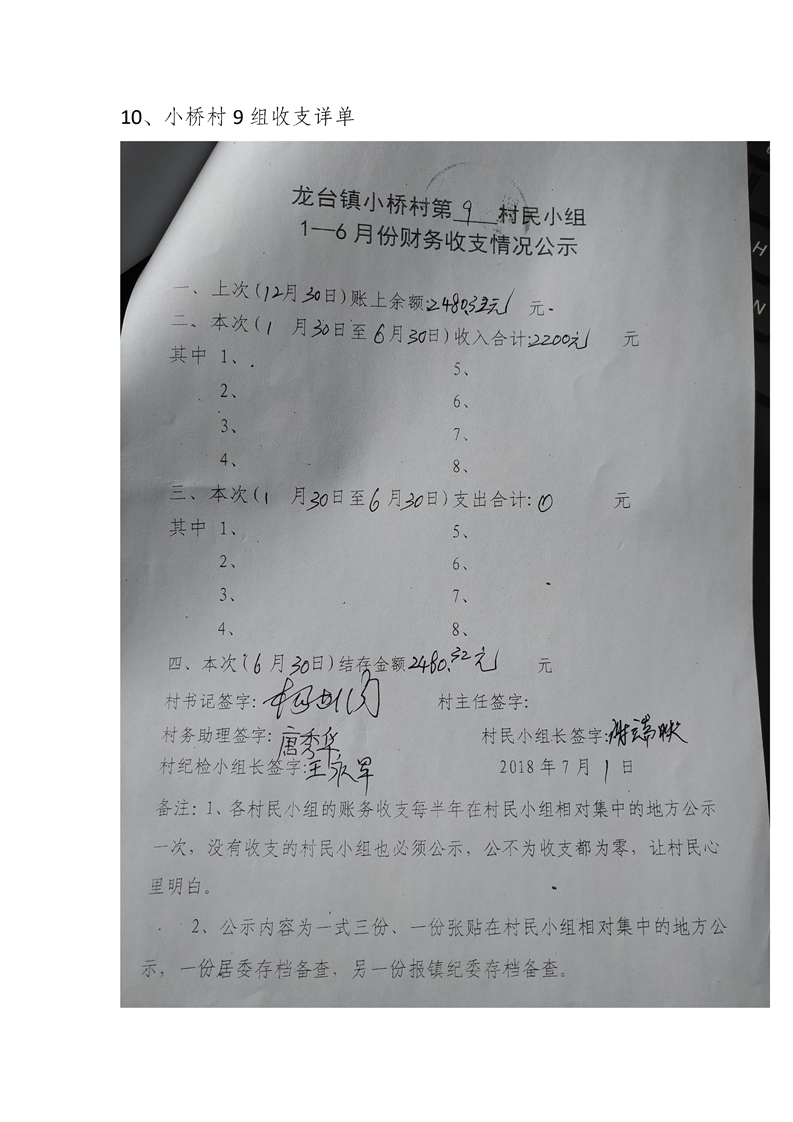 10、小桥村 9 组收支详单
龙台镇小桥村第 9 村民小组
1—6 月份财务收支情况公示
一、上次(12月30日)账上余额:2480.32元 元.
二、本次(1 月30日至6月30日)收入合计:2200元 元
其中 1、 5、
2、 6、
3、 7、
4、 8、
三、本次(1 月30日至6月30日)支出合计:0 元
其中 1、 5、
2、 6、
3、 7、
4、 8、
四、本次(6月30日)结存金额2480.32元 元
村书记签字: 村主任签字:
村务助理签字:唐秀华 村民小组长签字:
村纪检小组长签字:王永军 2018年7月1日
备注:1、各村民小组的账务收支每半年在村民小组相对集中的地方公示
一次,没有收支的村民小组也必须公示,公不为收支都为零,让村民心
里明白。
2、公示内容为一式三份、一份张贴在村民小组相对集中的地方公
示,一份居委存档备查,另一份报镇纪委存档备查。